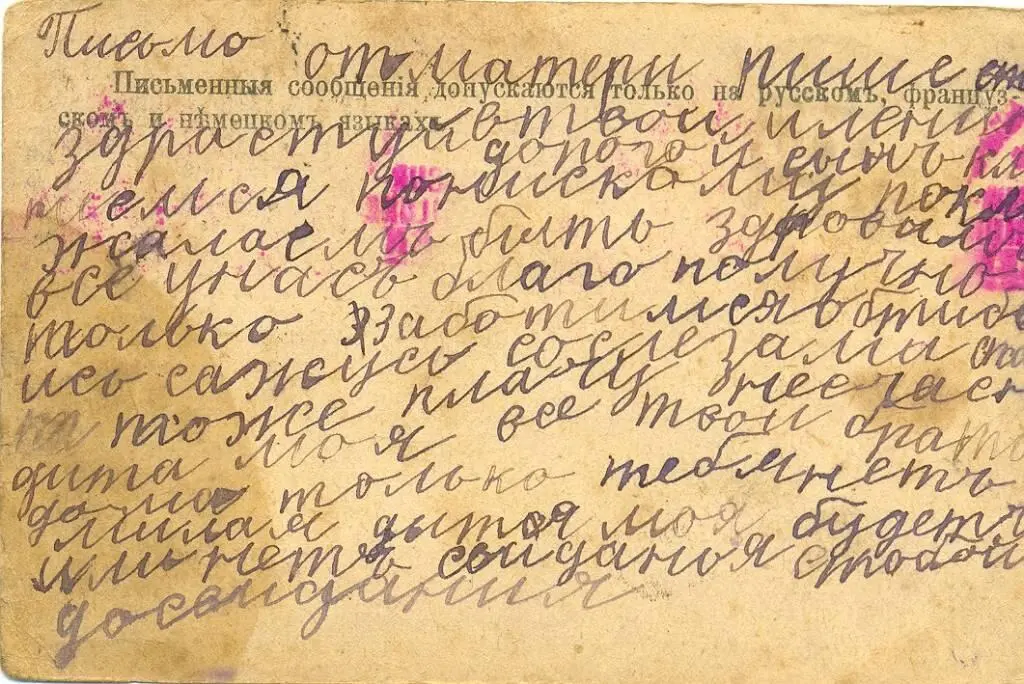 Письмо от матери пише
Письменныя сообщенія допускаются только на русскомъ, француз-
скомъ и нѣмецкомъ языкахъ.
здрастуй твои имени
дорогой сынъ кла
емся понискому покл
жалаемъ быть здоровамъ
все унасъ благо получно
только заботимся обтибе
ись сажусь сослезами
тоже плачу несчасн
дита моя все твои брат
дома только тебя нетъ
милая дытоя моя будетъ
илы нетъ свиданя стобой
досвидания